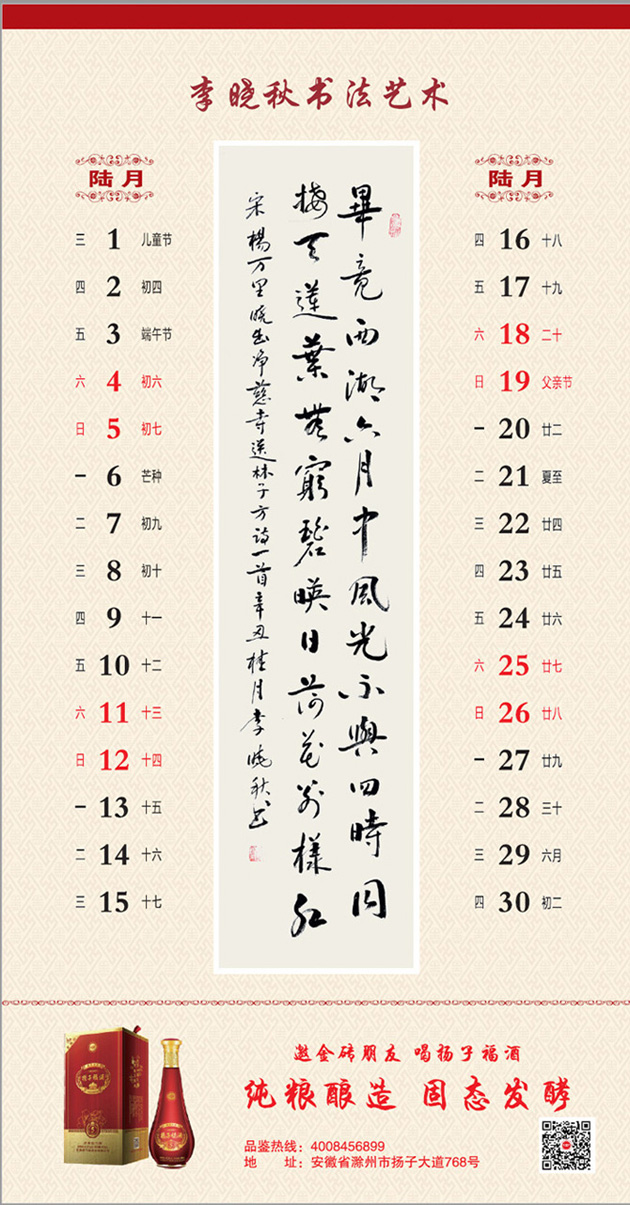 李晓秋书法艺术
陆月
三 1 儿童节
四 2 初四
五 3 端午节
六 4 初六
日 5 初七
一 6 芒种
二 7 初九
三 8 初十
四 9 十一
五 10 十二
六 11 十三
日 12 十四
一 13 十五
二 14 十六
三 15 十七
畢竟西湖六月中風光不與四時同
接天蓮葉無窮碧映日荷花別樣紅
宋楊万里曉出净慈寺送林子方詩一首辛丑桂月李晓秋书
陆月
四 16 十八
五 17 十九
六 18 二十
日 19 父亲节
一 20 廿二
二 21 夏至
三 22 廿四
四 23 廿五
五 24 廿六
六 25 廿七
日 26 廿八
一 27 廿九
二 28 三十
三 29 六月
四 30 初二
邀金砖朋友 喝扬子福酒
纯粮酿造 固态发酵
品鉴热线：4008456899
地 址：安徽省滁州市扬子大道768号